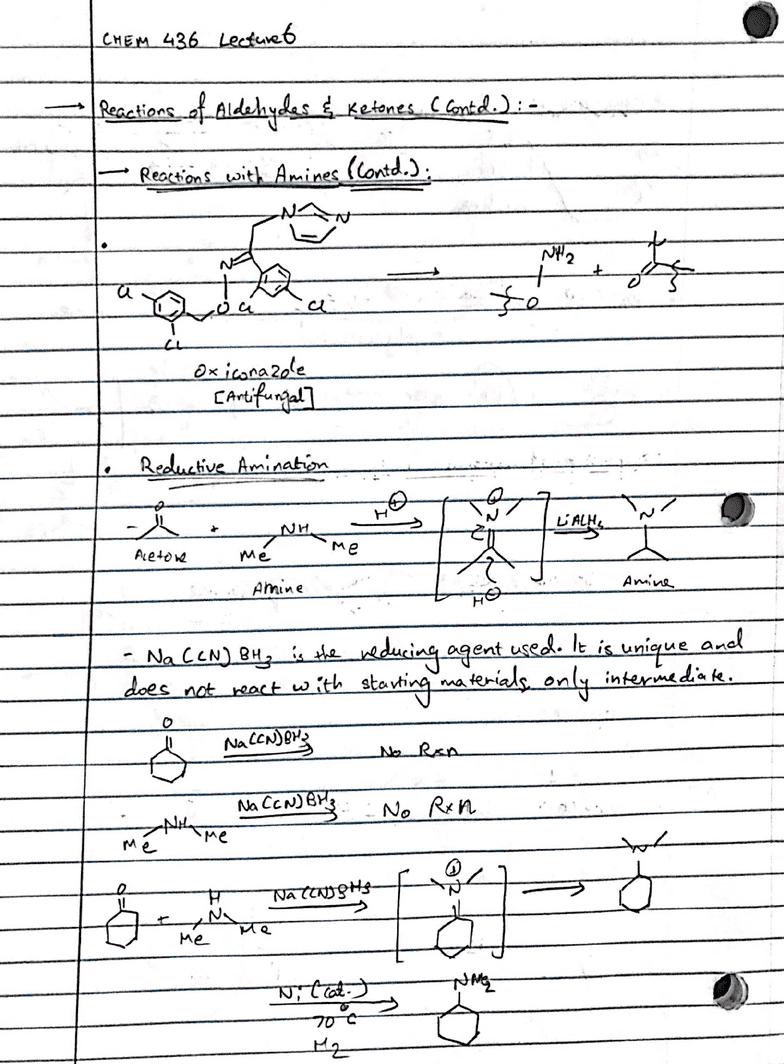 CHEM 436 Lecture 6
→ Reactions of Aldehydes & Ketones (Contd.) : -
→ Reactions with Amines (Contd.) :
N N
N
NH2
Cl O Cl Cl + O
O
Cl
Oxiconazole
[Antifungal]
• Reductive Amination
O + NH H⊕ N⊕ LiAlH4 N
Acetone Me Me
Amine H⊖ Amine
- Na(CN)BH3 is the reducing agent used. It is unique and
does not react with starting materials, only intermediate.
O Na(CN)BH3 No Rxn
NH Na(CN)BH3 No Rxn
Me Me
O + H N Na(CN)BH3 ⊕ N N
Me Me
Ni (cat.) NMe2
70°C
H2